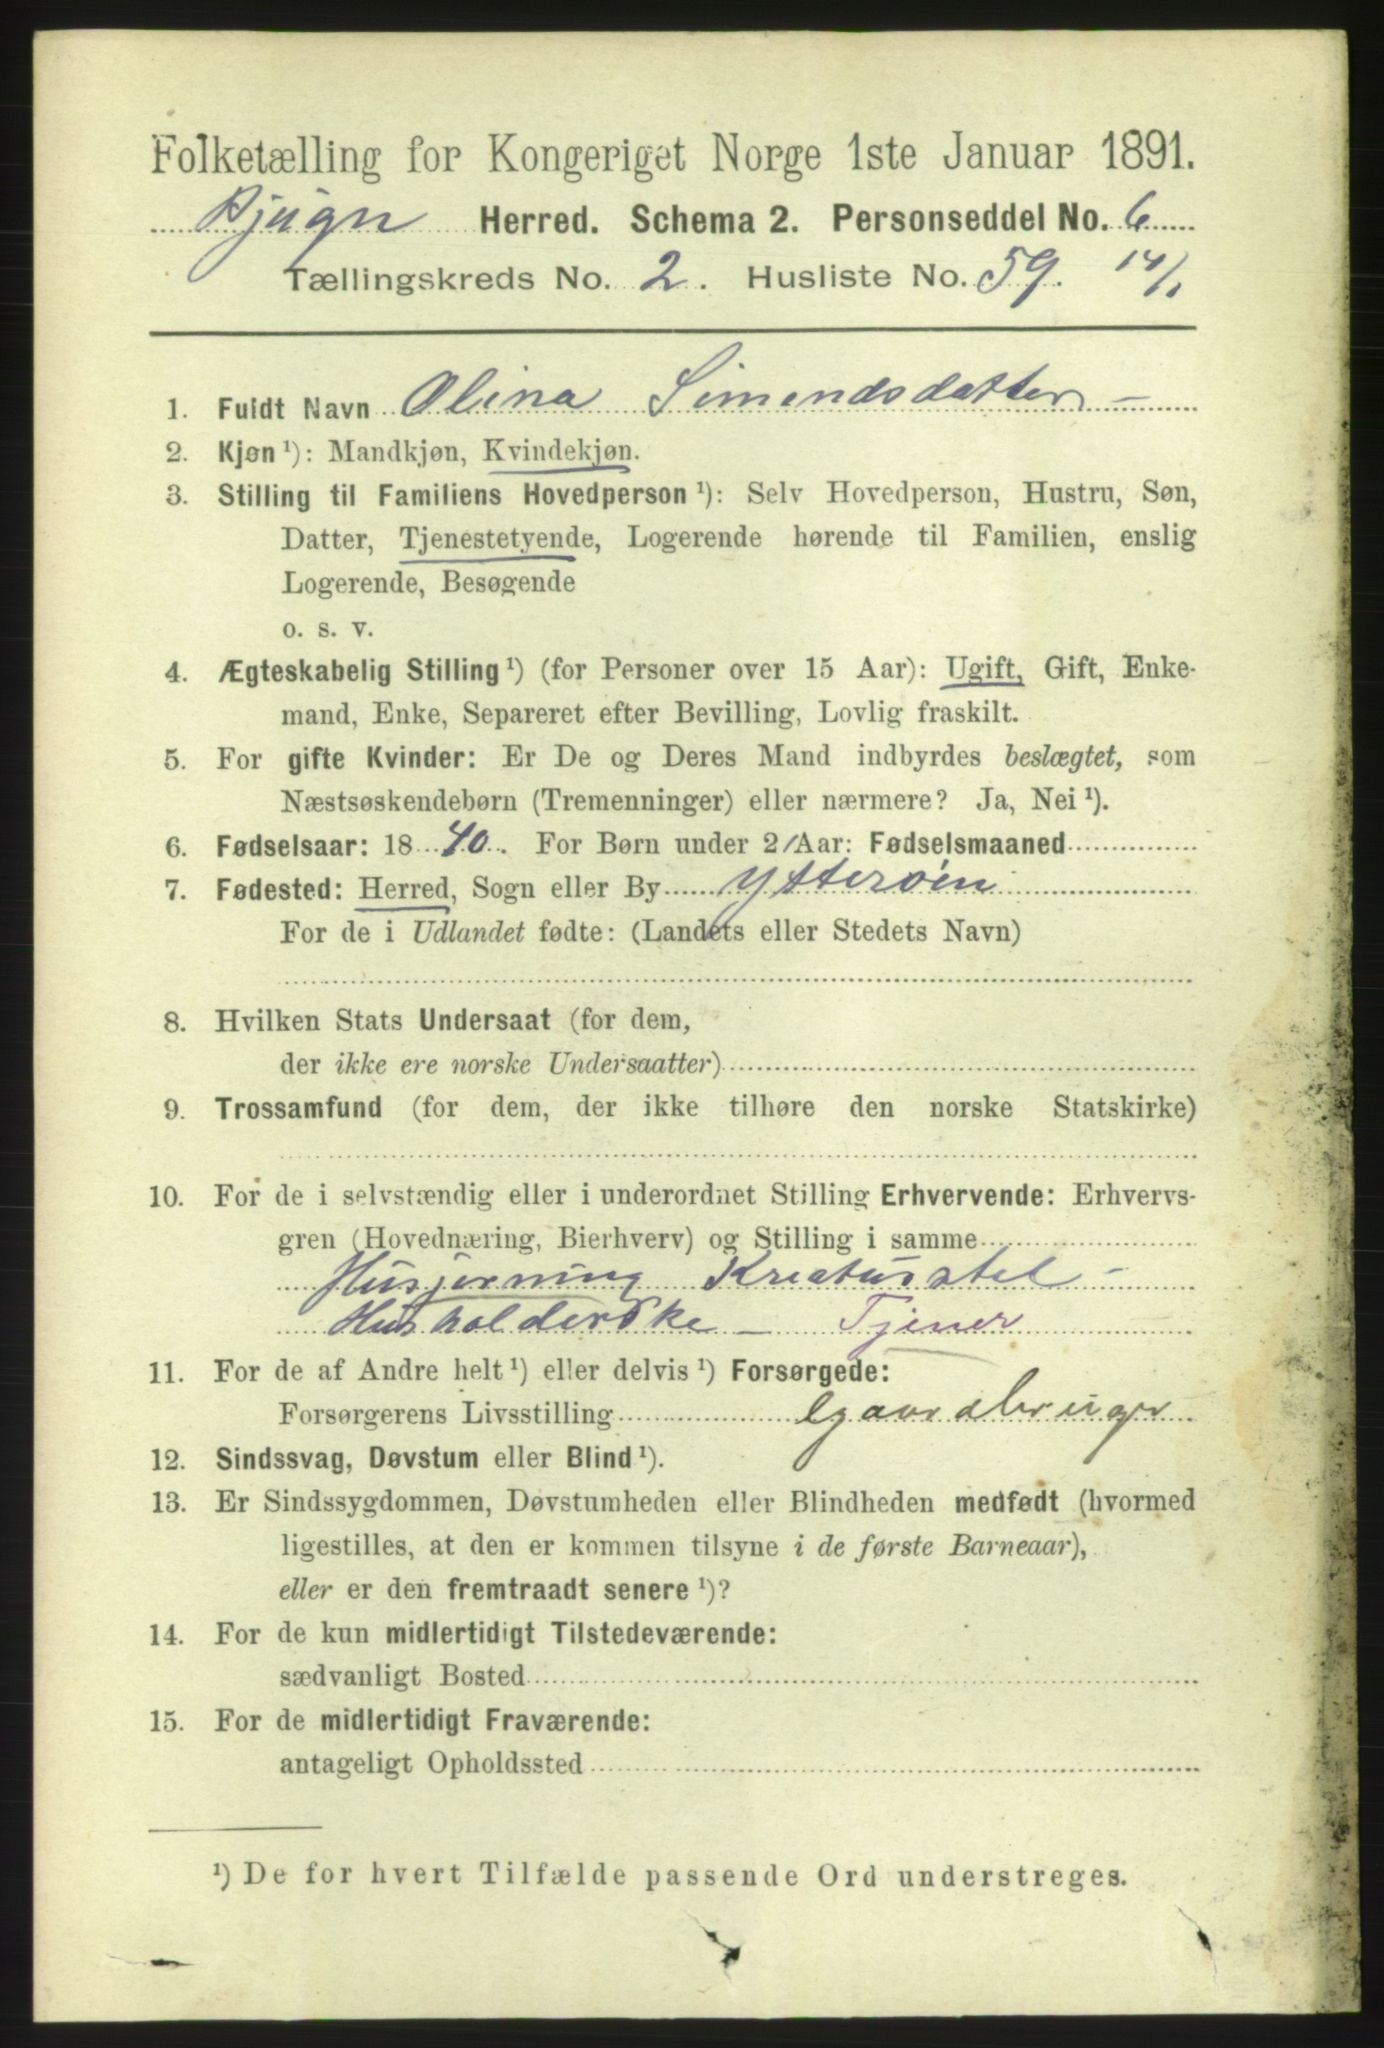 Folketælling for Kongeriget Norge 1ste Januar 1891.
Bjugn Herred. Schema 2. Personseddel No. 6
Tællingskreds No. 2. Husliste No. 59. 14/1
1. Fuldt Navn Olina Simonsdatter –
2. Kjøn ¹): Mandkjøn, Kvindekjøn.
3. Stilling til Familiens Hovedperson ¹): Selv Hovedperson, Hustru, Søn,
Datter, Tjenestetyende, Logerende hørende til Familien, enslig
Logerende, Besøgende
o. s. v.
4. Ægteskabelig Stilling ¹) (for Personer over 15 Aar): Ugift, Gift, Enke-
mand, Enke, Separeret efter Bevilling, Lovlig fraskilt.
5. For gifte Kvinder: Er De og Deres Mand indbyrdes beslægtet, som
Næstsøskendebørn (Tremenninger) eller nærmere? Ja, Nei ¹).
6. Fødselsaar: 18 40. For Børn under 2 Aar: Fødselsmaaned
7. Fødested: Herred, Sogn eller By Ytterøin
For de i Udlandet fødte: (Landets eller Stedets Navn)
8. Hvilken Stats Undersaat (for dem,
der ikke ere norske Undersaatter)
9. Trossamfund (for dem, der ikke tilhøre den norske Statskirke)
10. For de i selvstændig eller i underordnet Stilling Erhvervende: Erhvervs-
gren (Hovednæring, Bierhverv) og Stilling i samme
Husgjerning Kreaturstel –
Husholderske – Tjener
11. For de af Andre helt ¹) eller delvis ¹) Forsørgede:
Forsørgerens Livsstilling Gaardbruger
12. Sindssvag, Døvstum eller Blind ¹).
13. Er Sindssygdommen, Døvstumheden eller Blindheden medfødt (hvormed
ligestilles, at den er kommen tilsyne i de første Barneaar),
eller er den fremtraadt senere ¹)?
14. For de kun midlertidigt Tilstedeværende:
sædvanligt Bosted
15. For de midlertidigt Fraværende:
antageligt Opholdssted
¹) De for hvert Tilfælde passende Ord understreges.